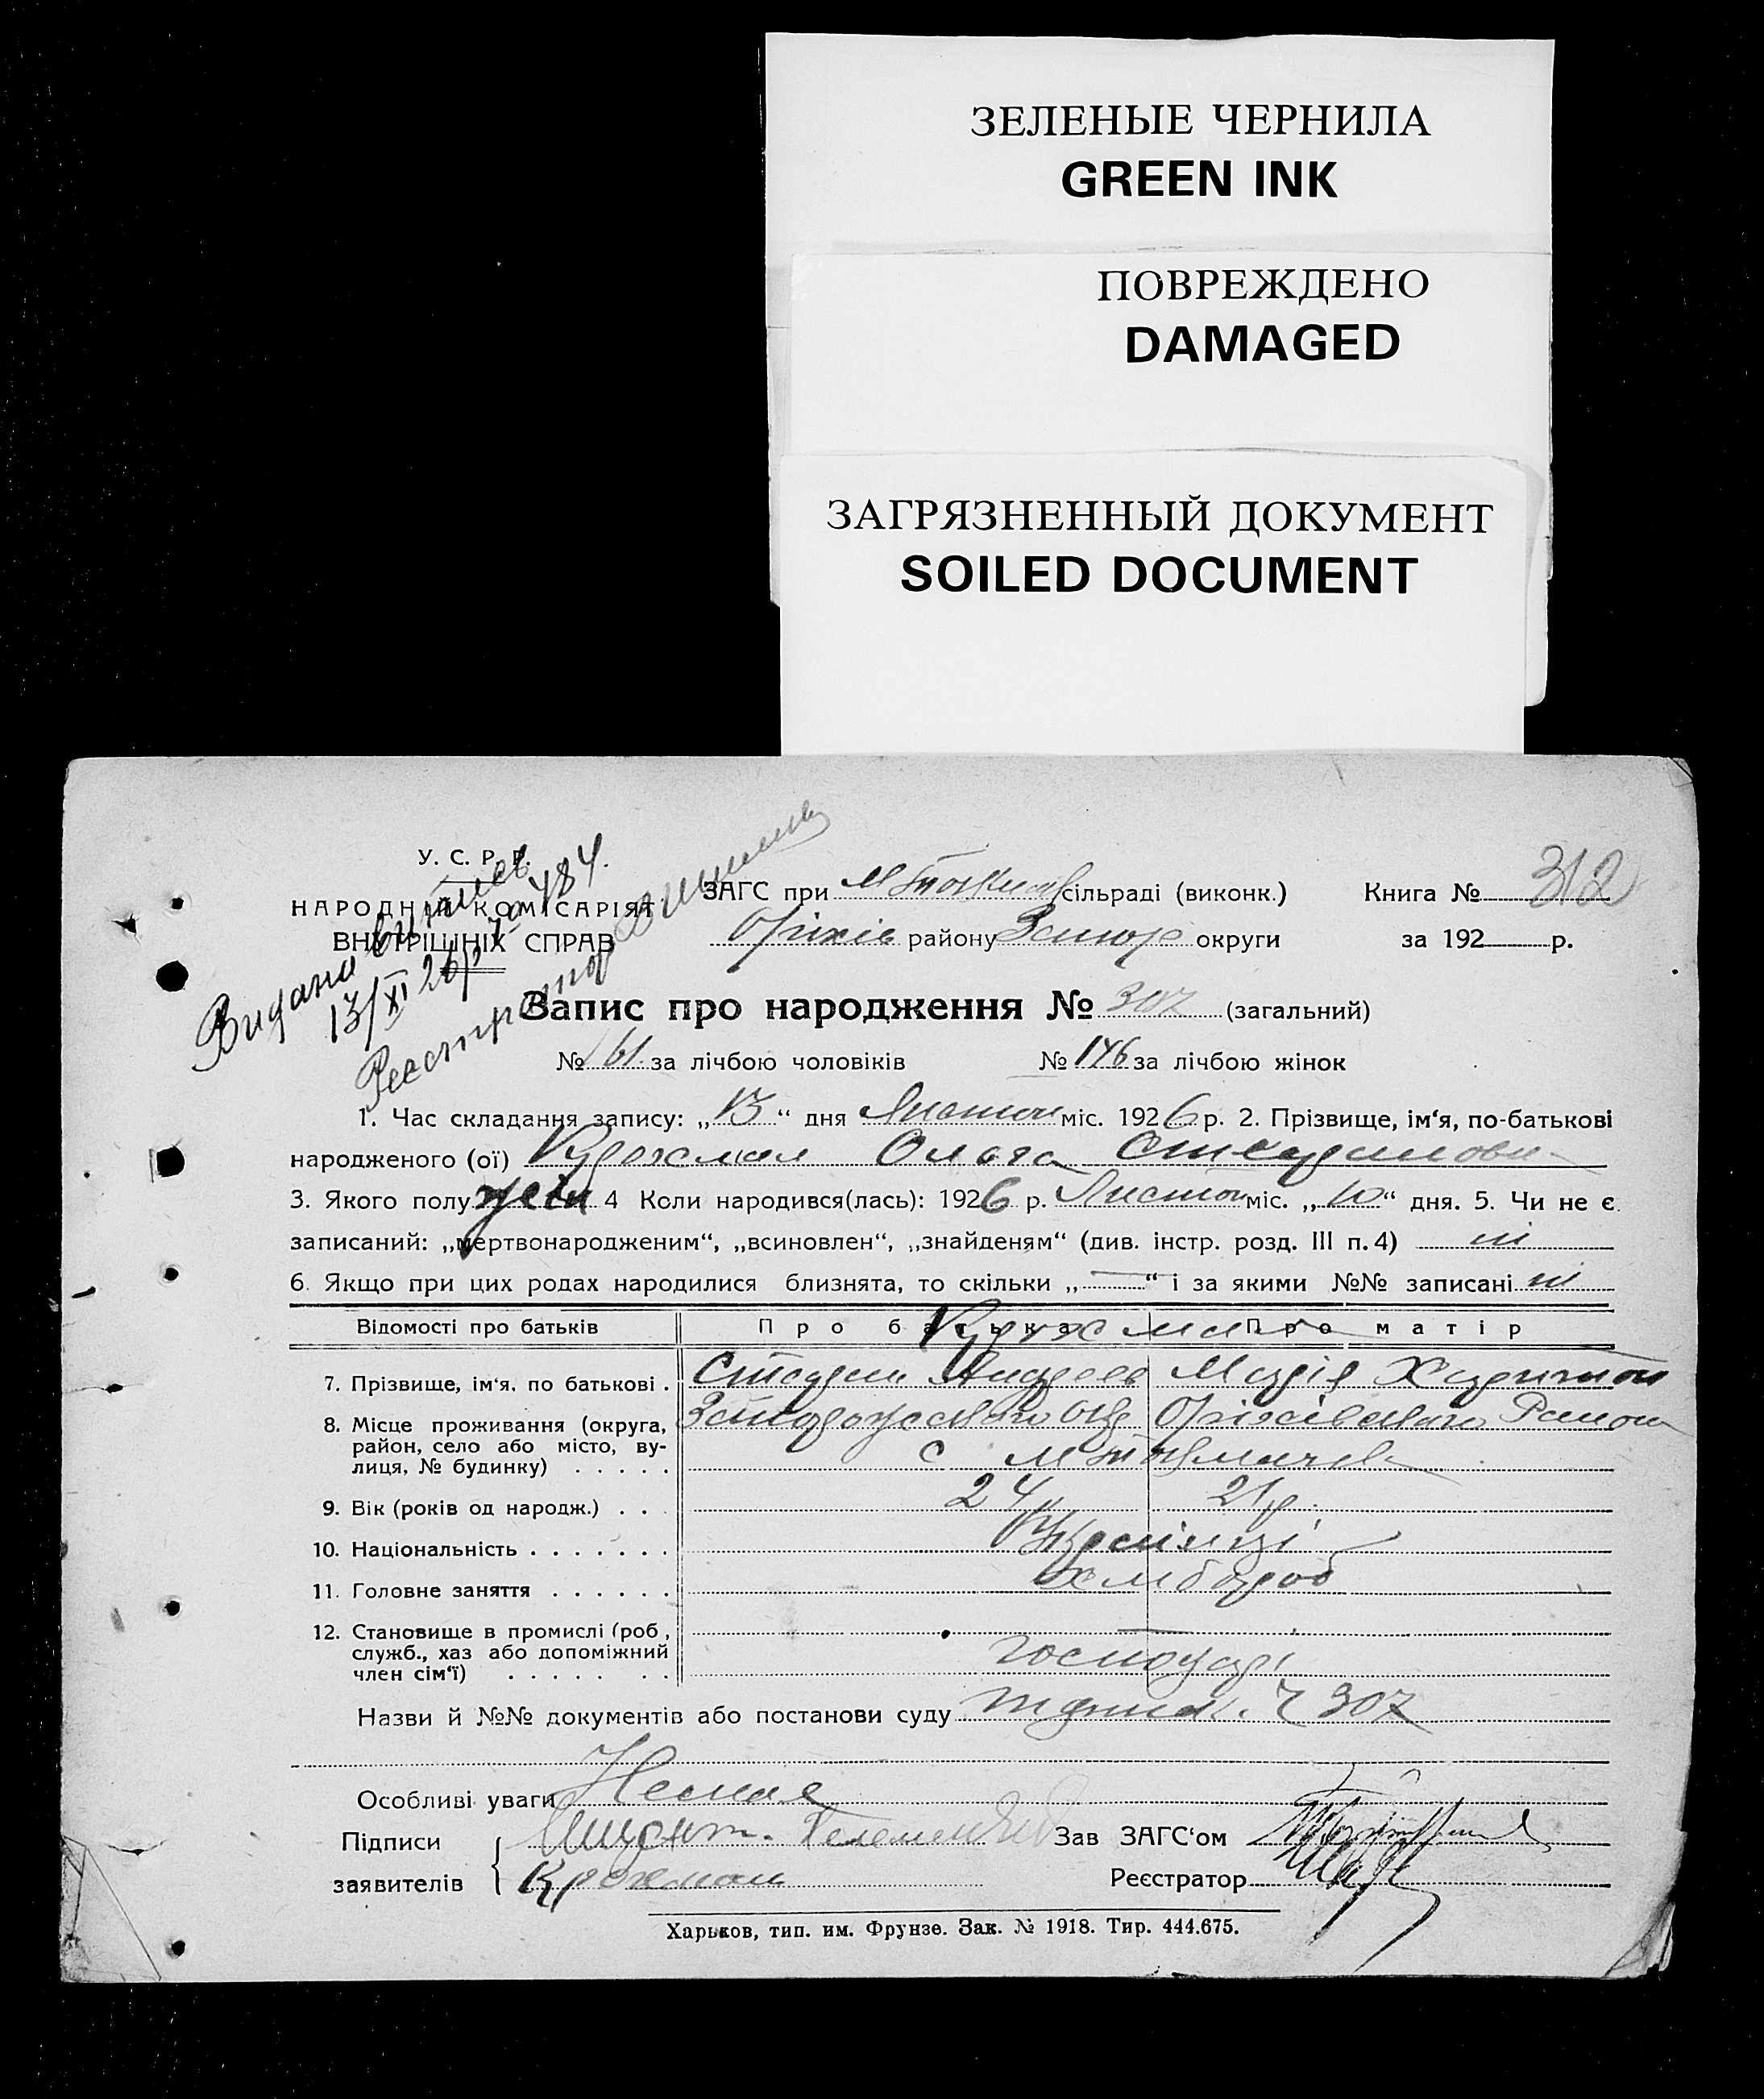 ЗЕЛЕНЫЕ ЧЕРНИЛА
GREEN INK
ПОВРЕЖДЕНО
DAMAGED
ЗАГРЯЗНЕННЫЙ ДОКУМЕНТ
SOILED DOCUMENT
У. С. Р. Р.
НАРОДНІЙ КОМІСАРІЯТ
ВНУТРІШНІХ СПРАВ
Видана
13/XI 26р. 484.
ЗАГС при М Токмач сільраді (виконк.) Книга № 312
Оріхів району Запор округи за 192 р.
Запис про народження № 307 (загальний)
№ 161 за лічбою чоловіків № 146 за лічбою жінок
1. Час складання запису: „13“ дня Листоп міс. 1926 р. 2. Прізвище, ім‘я, по-батькові
народженого (ої) Ольга
3. Якого полу жін 4 Коли народився(лась): 1926 р. Листоп міс. „10“ дня. 5. Чи не є
записаний: „мертвонародженим“, „всиновлен“, „знайденям“ (див. інстр. розд. III п. 4) ні
6. Якщо при цих родах народилися близнята, то скільки „—“ і за якими №№ записані ні
Відомості про батьків Про батька Про матір
7. Прізвище, ім‘я, по батькові . Андреев Марія Харитон
8. Місце проживання (округа, Запорожского Окр Оріхівського Району
район, село або місто, ву-
лиця, № будинку) . . . . . с М Токмачев
9. Вік (років од народж.) . . . 24 21 р.
10. Національність . . . . . . . Українці
11. Головне заняття . . . . . . хлібороб
12. Становище в промислі (роб.,
служб., хаз або допоміжний
член сім‘ї) . . . . . . . . господарі
Назви й №№ документів або постанови суду 307
Особливі уваги Немае
Підписи Зав ЗАГС‘ом
заявителів Реєстратор
Харьков, тип. им. Фрунзе. Зак. № 1918. Тир. 444.675.